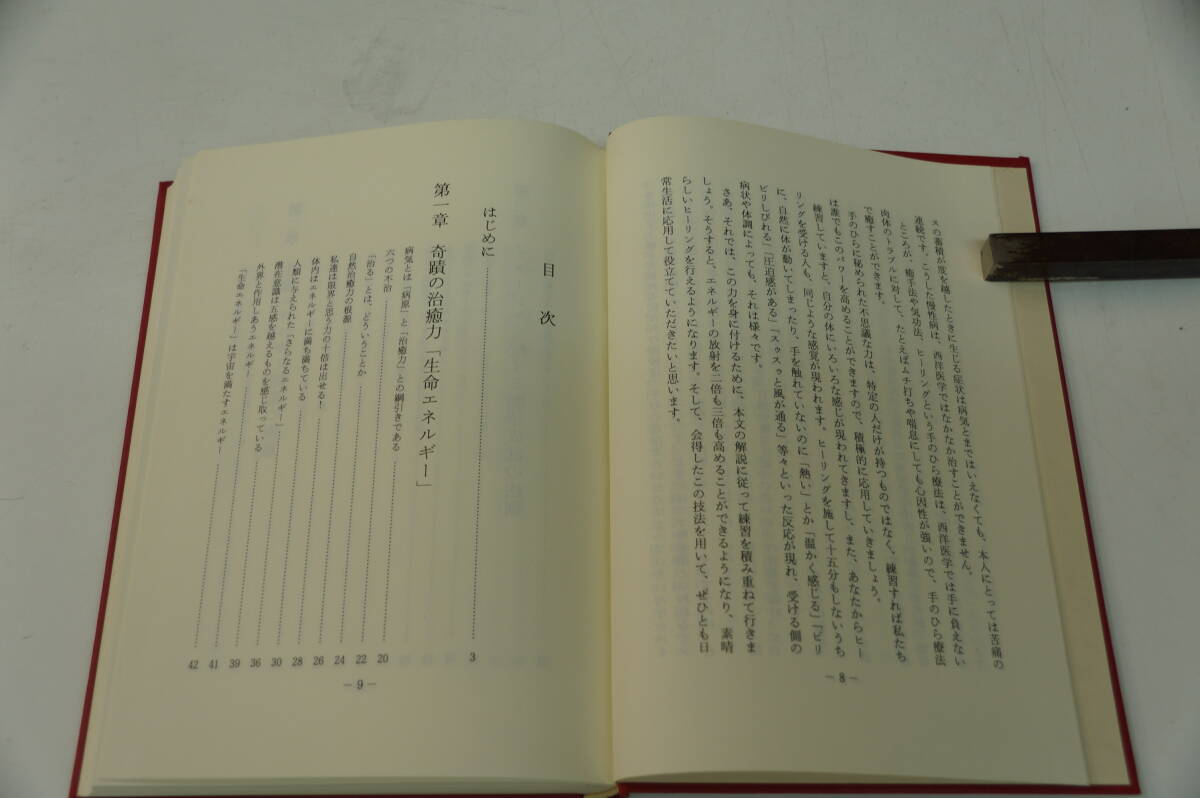 スの蓄積が度を越したときに生じる症状は病気とまではいえなくても、本人にとっては苦痛の
連続です。こうした慢性病は、西洋医学ではなかなか治すことができません。
ところが、癒手法や気功法、ヒーリングという手のひら療法は、西洋医学では手に負えない
肉体のトラブルに対して、たとえばムチ打ちや喘息にしても心因性が強いので、手のひら療法
で癒すことができます。
手のひらに秘められた不思議な力は、特定の人だけが持つものではなく、練習すれば私たち
は誰でもこのパワーを高めることができますので、積極的に応用していきましょう。
練習していますと、自分の体にいろいろな感じが現われてきますし、また、あなたからヒー
リングを受ける人も、同じような感覚が現われます。ヒーリングを施して十五分もしないうち
に、自然に体が動いてしまったり、手を触れていないのに「熱い」とか「温かく感じる」「ビリ
ビリしびれる」「圧迫感がある」「スゥスゥと風が通る」等々といった反応が現れ、受ける側の
病状や体調によっても、それは様々です。
さあ、それでは、この力を身に付けるために、本文の解説に従って練習を積み重ねて行きま
しょう。そうすると、エネルギーの放射を二倍も三倍も高めることができるようになり、素晴
らしいヒーリングを行えるようになります。そして、会得したこの技法を用いて、ぜひとも日
常生活に応用して役立てていただきたいと思います。
— 8 —
目次
はじめに 3
第一章 奇蹟の治癒力「生命エネルギー」
病気とは「病原」と「治癒力」との綱引きである 20
六つの不治 22
「治る」とは、どういうことか 24
自然治癒力の根源 26
私達は限界と思う力の十倍は出せる! 28
体内はエネルギーに満ち満ちている 30
人類に与えられた「さらなるエネルギー」 36
潜在意識は五感を越えるものを感じ取っている 39
外界と作用しあうエネルギー 41
「生命エネルギー」は宇宙を満たすエネルギー 42
— 9 —